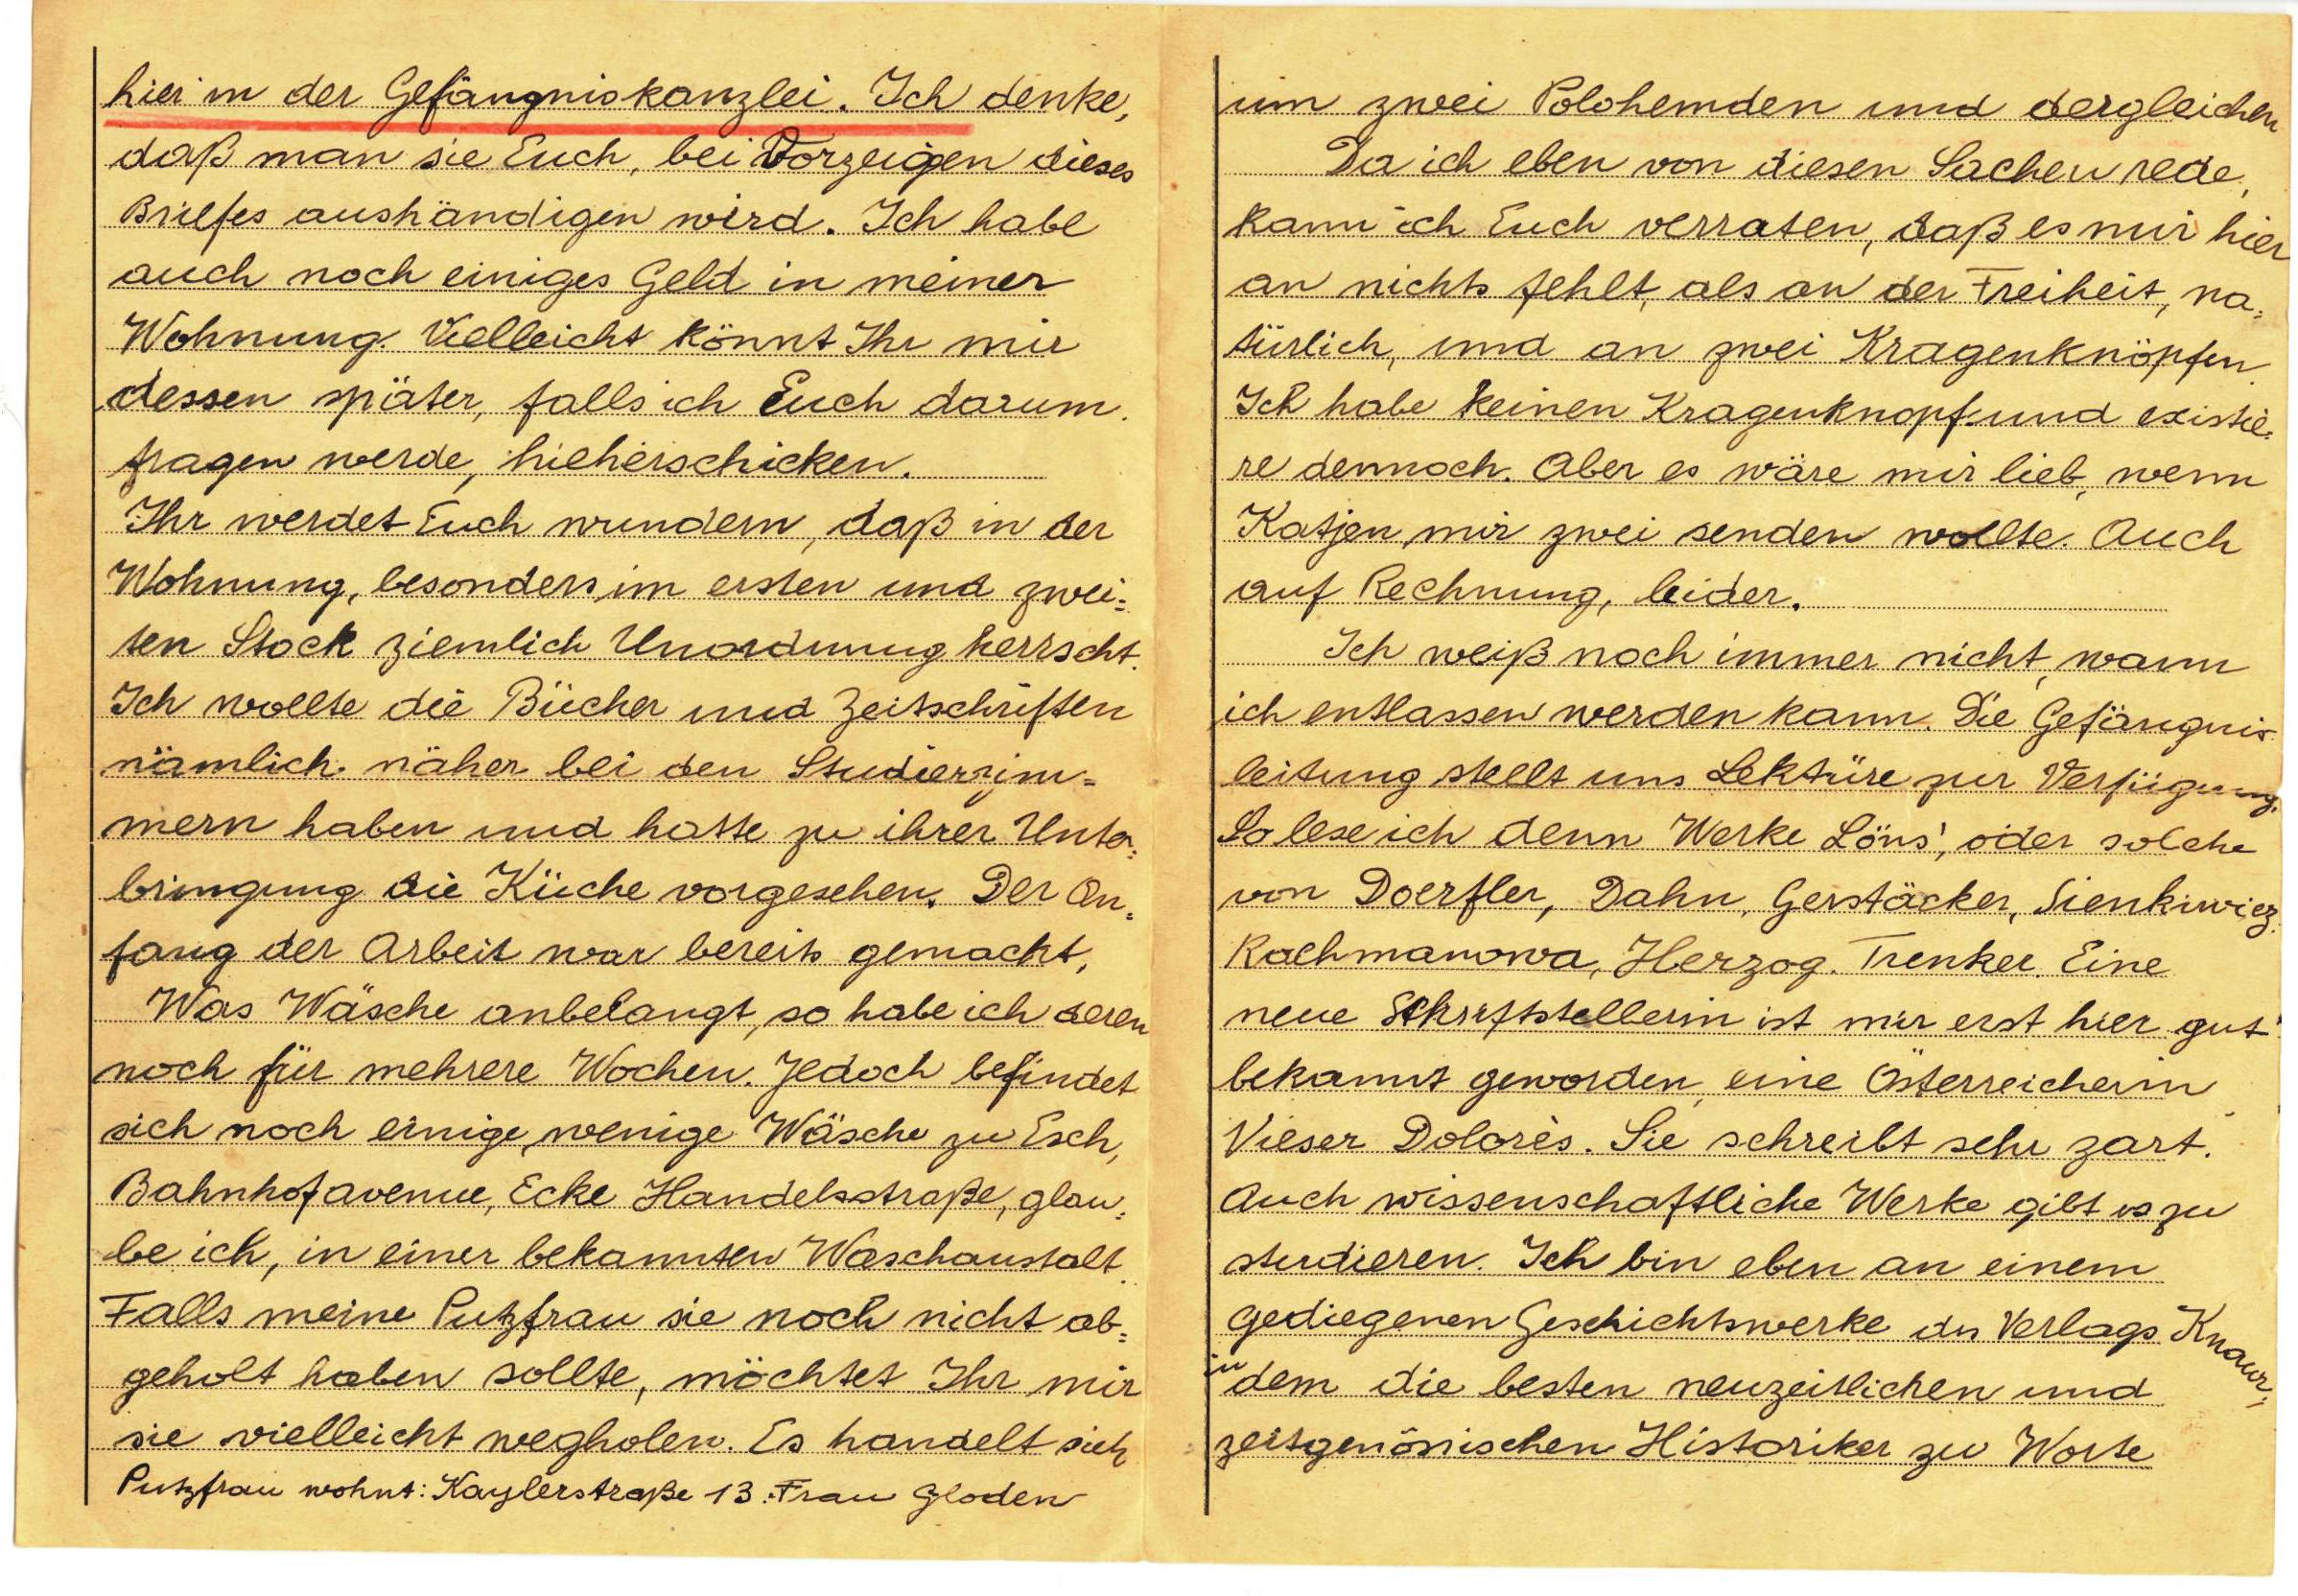 hier in der Gefängniskanzlei. Ich denke,
daß man sie Euch, bei Vorzeigen dieses
Briefes aushändigen wird. Ich habe
auch noch einiges Geld in meiner
Wohnung. Vielleicht könnt Ihr mir
dessen später, falls ich Euch darum
fragen werde, hieherschicken.
Ihr werdet Euch wundern, daß in der
Wohnung, besonders im ersten und zwei=
ten Stock ziemlich Unordnung herrscht.
Ich wollte die Bücher und Zeitschriften
nämlich näher bei den Studierzim=
mern haben und hatte zu ihrer Unter=
bringung die Küche vorgesehen. Der An=
fang der Arbeit war bereits gemacht,
Was Wäsche anbelangt, so habe ich deren
noch für mehrere Wochen. Jedoch befindet
sich noch einige, wenige Wäsche zu Esch,
Bahnhofavenue, Ecke Handelsstraße, glau=
be ich, in einer bekannten Waschanstalt.
Falls meine Putzfrau sie noch nicht ab=
geholt haben sollte, möchtet Ihr mir
sie vielleicht wegholen. Es handelt sich
Putzfrau wohnt: Kaylerstraße 13. Frau Gloden
um zwei Polohemden und dergleichen
Da ich eben von diesen Sachen rede,
kann ich Euch verraten, daß es mir hier
an nichts fehlt, als an der Freiheit, na=
türlich, und an zwei Kragenknöpfen.
Ich habe keinen Kragenknopf und existie=
re dennoch. Aber es wäre mir lieb, wenn
Katjen mir zwei senden wollte. Auch
auf Rechnung, leider.
Ich weiß noch immer nicht, wann
ich entlassen werden kann. Die Gefängnis
leitung stellt uns Lektüre zur Verfügung.
So lese ich denn Werke Löns', oder solche
von Doerfler, Dahn, Gerstäcker, Sienkiwicz,
Rachmanowa, Herzog. Trenker. Eine
neue Schriftstellerin ist mir erst hier gut
bekannt geworden, eine Österreicherin,
Vieser Dolorès. Sie schreibt sehr zart.
Auch wissenschaftliche Werke gibt es zu
studieren. Ich bin eben an einem
gediegenen Geschichtswerke des Verlags Knaur,
in dem die besten neuzeitlichen und
zeitgenössischen Historiker zu Worte